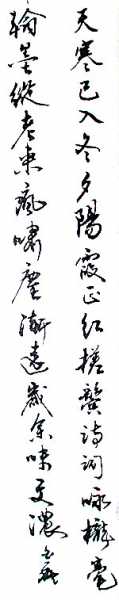 天寒已入冬夕陽霞正紅搓鬢詩詞咏攏毫
翰墨縱老來瘋嘯塵漸遠歲余味更濃